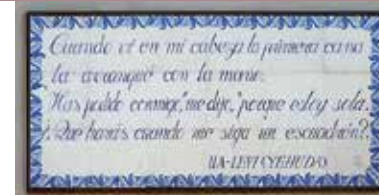 Cuando vi en mi cabeza la primera cana
la arranqué con la mano.
"Has podido conmigo," me dijo, "porque estoy sola.
¿Qué harás cuando me siga un escuadrón?.